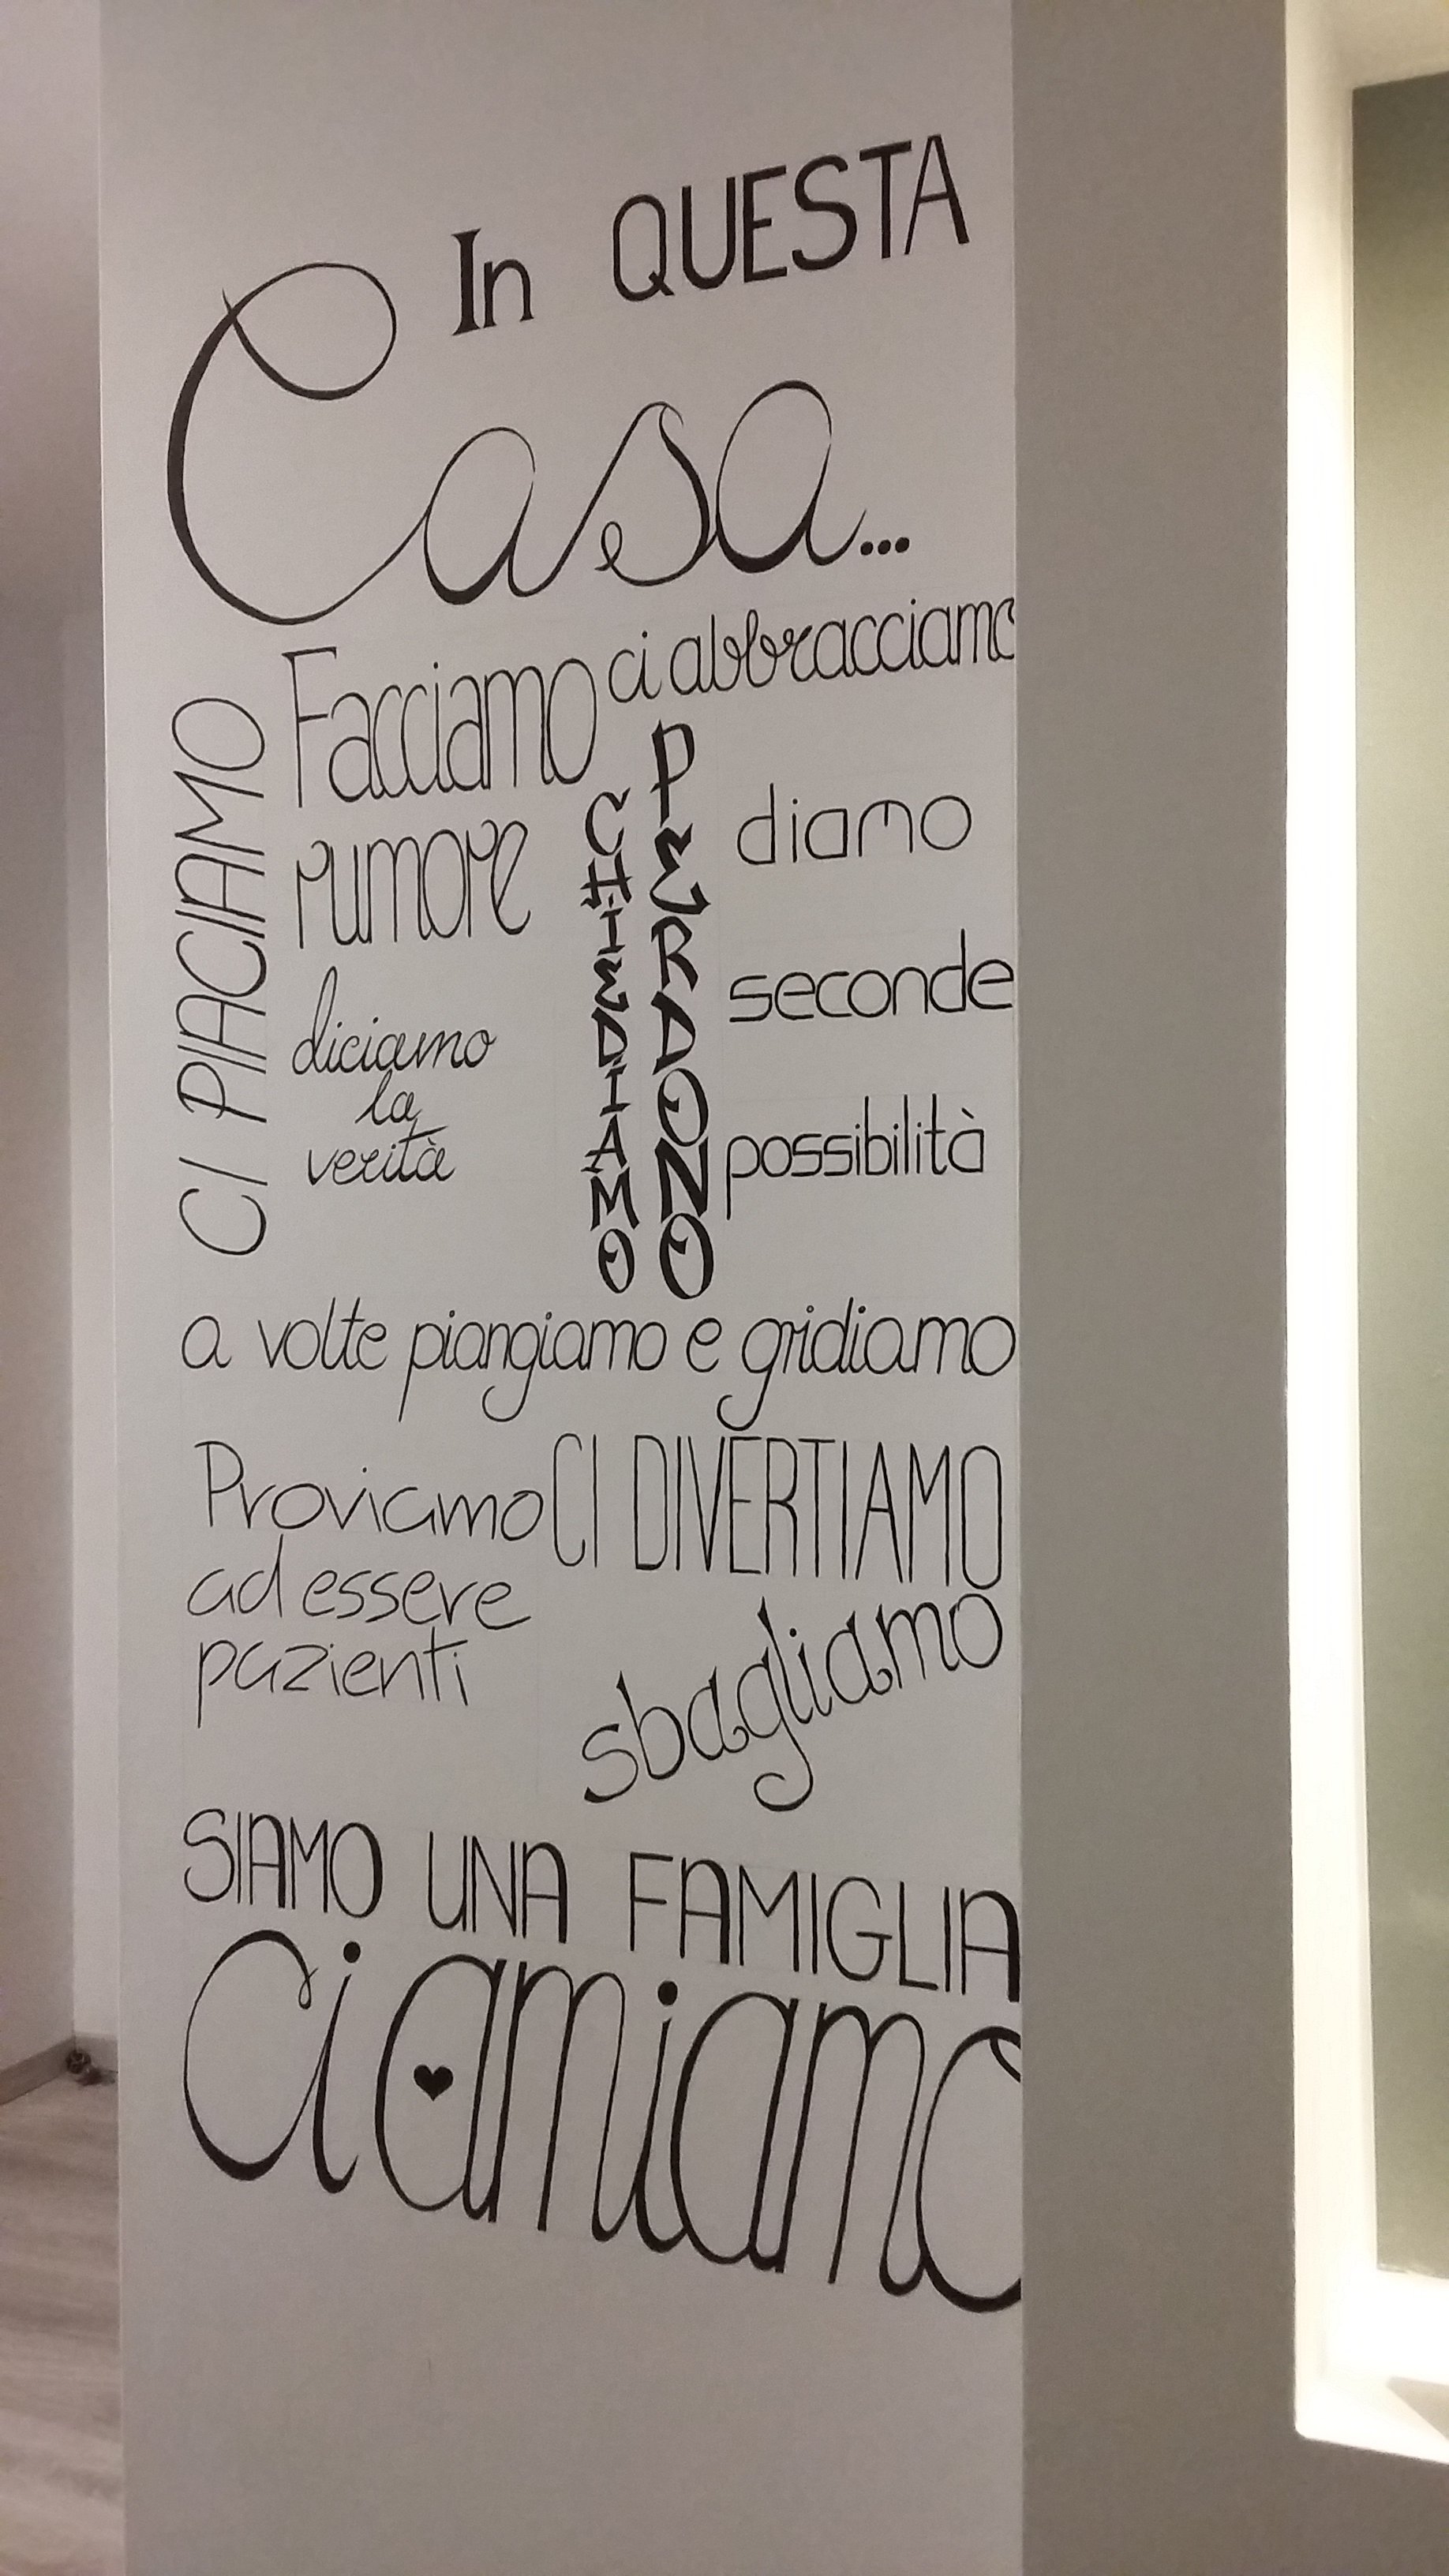 In QUESTA
Casa...
CI PIACIAMO
Facciamo
rumore
ci abbracciamo
diciamo
la
verità
CHIEDIAMO
PERDONO
diamo
seconde
possibilità
a volte piangiamo e gridiamo
Proviamo
ad essere
pazienti
CI DIVERTIAMO
sbagliamo
SIAMO UNA FAMIGLIA
ci amiamo